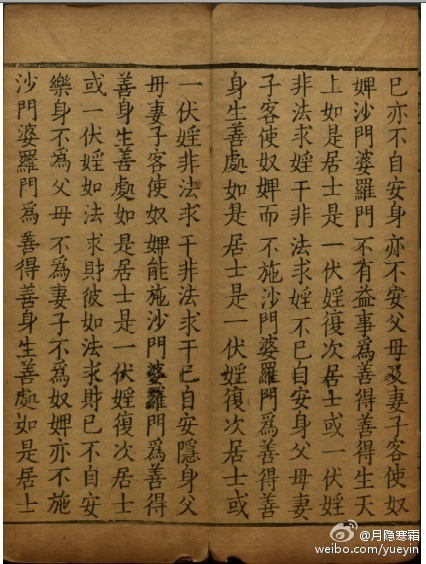 已亦不自安身亦不安父母及妻子客使奴
婢沙門婆羅門不有益事為善得善得生天
上如是居士是一伏婬復次居士或一伏婬
非法求婬干非法求婬不已自安身父母妻
子客使奴婢而不施沙門婆羅門為善得善
身生善處如是居士是一伏婬復次居士或
一伏婬非法求干非法求干已自安隱身父
母妻子客使奴婢能施沙門婆羅門為善得
善身生善處如是居士是一伏婬復次居士
或一伏婬如法求財彼如法求財已不自安
樂身不為父母不為妻子不為奴婢亦不施
沙門婆羅門為善得善身生善處如是居士
@月隐寒霜
weibo.com/yueyin